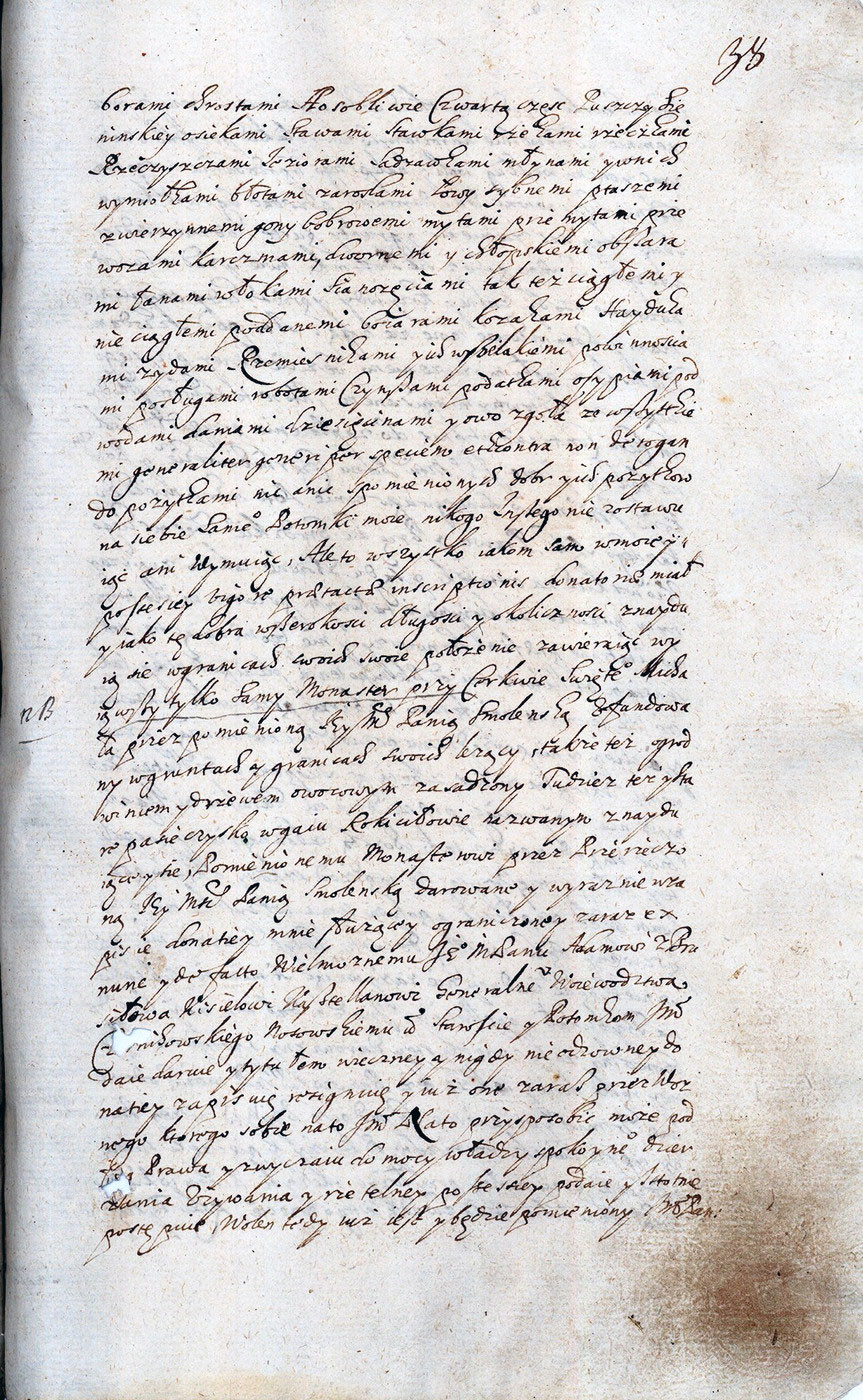 38
borami chrostami Aosobliwie Czwartą częsc Puszczy Sie
ninskiey osiekami Stawami Stawkami rzekami rzeczkami
Rzeczyszczami Jeziorami Sadzawkami młynami y wnich
wymiołkami błotami zaroslami Łowy rybnemi ptaszemi
zwierzynnemi gony bobrowemi mytami przemytami prze
wozami karczmami, dwornemi y chłopskiemi obszara
mi Łanami włokami Sianozęciami tak też ciągłemi y
nie ciągłemi poddanemi boiarami kozakami Hayduka
mi zydami Rzemiesnikami y ich wszelakiemi powinnoscia
mi posługami robotami Czynszami podatkami osypiami pod
wodami daniami dziesięcinami y owo zgoła ze wszytkie
mi generaliter generi per speciem et contra non derogan
do pozytkami nic a nic spomienionych dobr y ich pozytkow
na siebie Same° Potomki moie nikogo Inszego nie zostawu
iąc ani Wymuiąc, Ale to wszystko iakom sam w moiey
possessiey vigore prætactæ inscriptionis donatoriæ miał
y jako te dobra wszerokosci długosci y okolicznosci znaydu
ią się w granicach swoich swoie położenie zawieraiąc wy
iąwszy tylko Samy Monaster przy Cerkwie Swięte° Micha
nB
ła przez pomienioną Jey Mć Panią Smolenską Zafundowa
ny w gruntach y granicach swoich lezący, takze też ogrod
winem y drzewem owocowym zasadzony Tudziez też ysta
re pasieczyska w gaiu Rokiciłowie nazwanym znaydu
iące się, Pomienionemu Monasterowi przez Przerzeczo
ną Jey Mść Panią Smolenską darowane y wyraznie w za
pisie donatiey mnie służącey ograniczoney zaraz ex
nunc y de facto Wielmoznemu Je° M Panu Adamowi z Bru
siłowa Kisielowi Kasztellanowi Generalne° Woiewodztwa
Czernihowskiego Nosowskiemu &c Staroscie y Potomkom Jmć
daie daruie y tytułem wieczney y nigdy nie odzowney do
natiey zapisuię rezignuię y iuż one zaraz przez Woz
nego ktorego sobie na to Jmć Pan to przysposobic może pod
Prawa y zwyczaiu do mocy władzy spokoyne° dzier
zania Uzywania y rzetelney possessiey podaie y Istotnie
postępuie, Wolen tedy iuż iest y będzie pomieniony Jmć Pan: